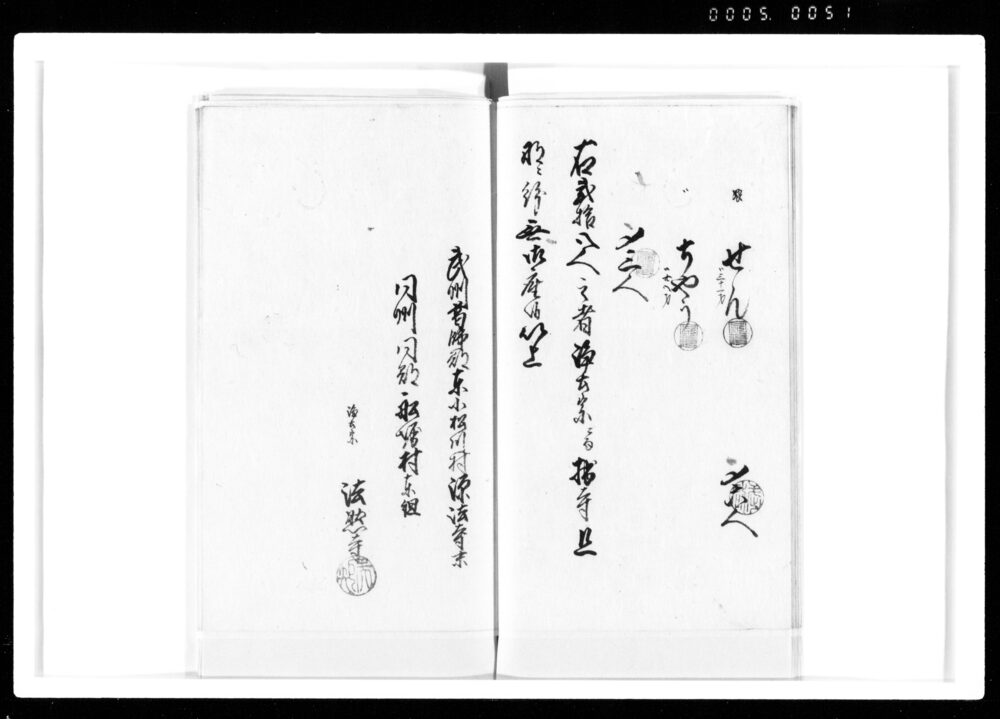 0005. 0051
せん
三十一才
〆三人
右弐拾弐人之者浄土宗ニ而拙寺旦
那ニ紛無御座候以上
武州葛飾郡東小松川村源法寺末
同州同郡船堀村東組
浄土宗
法然寺